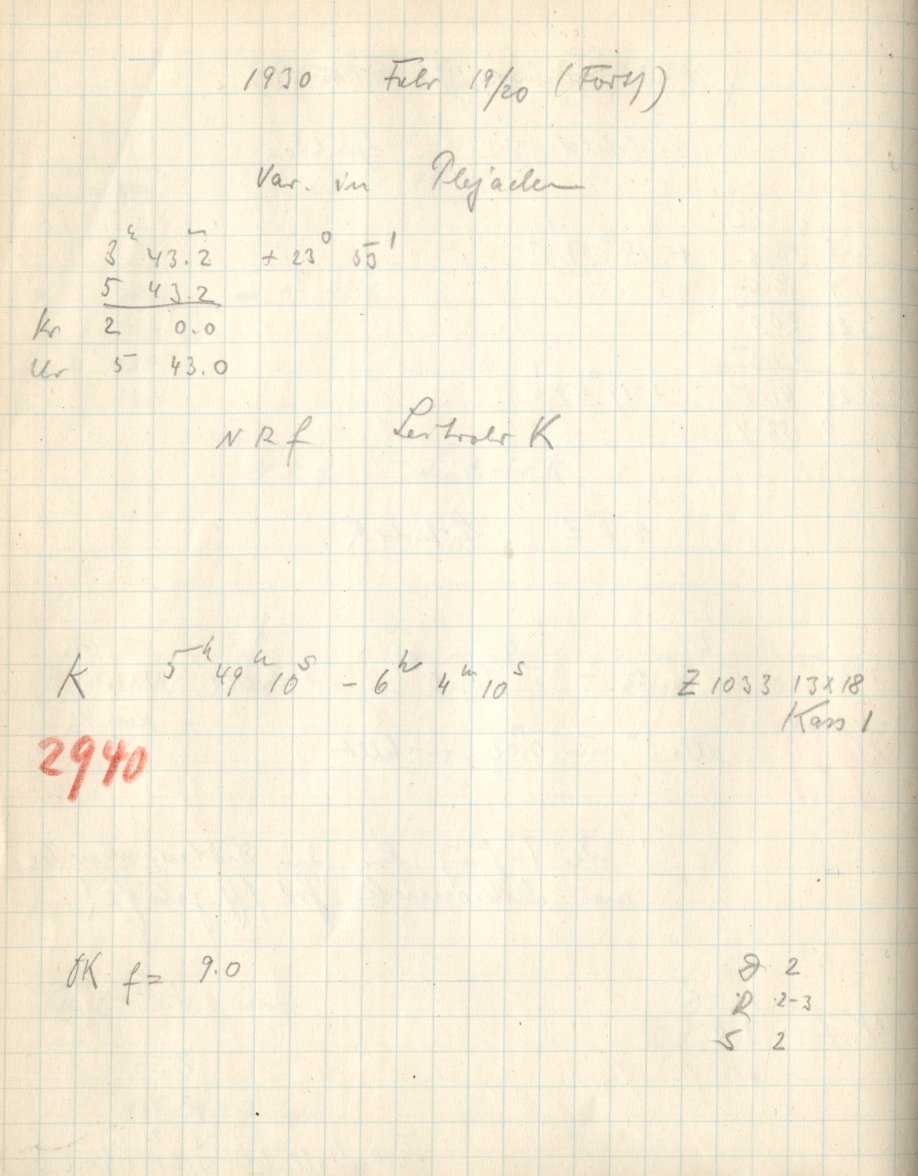 1930 Febr 19/20 (Forts)
Var. in Plejaden
3h 43.m2 + 23° 55'
5 43.2
Kr 2 0.0
Ur 5 43.0
N R f Leitrohr K
K 5h 49m 10s - 6h 4m 10s Z 1033 13x18
Kass 1
2940
OK f = 9.0
D 2
R 2-3
S 2